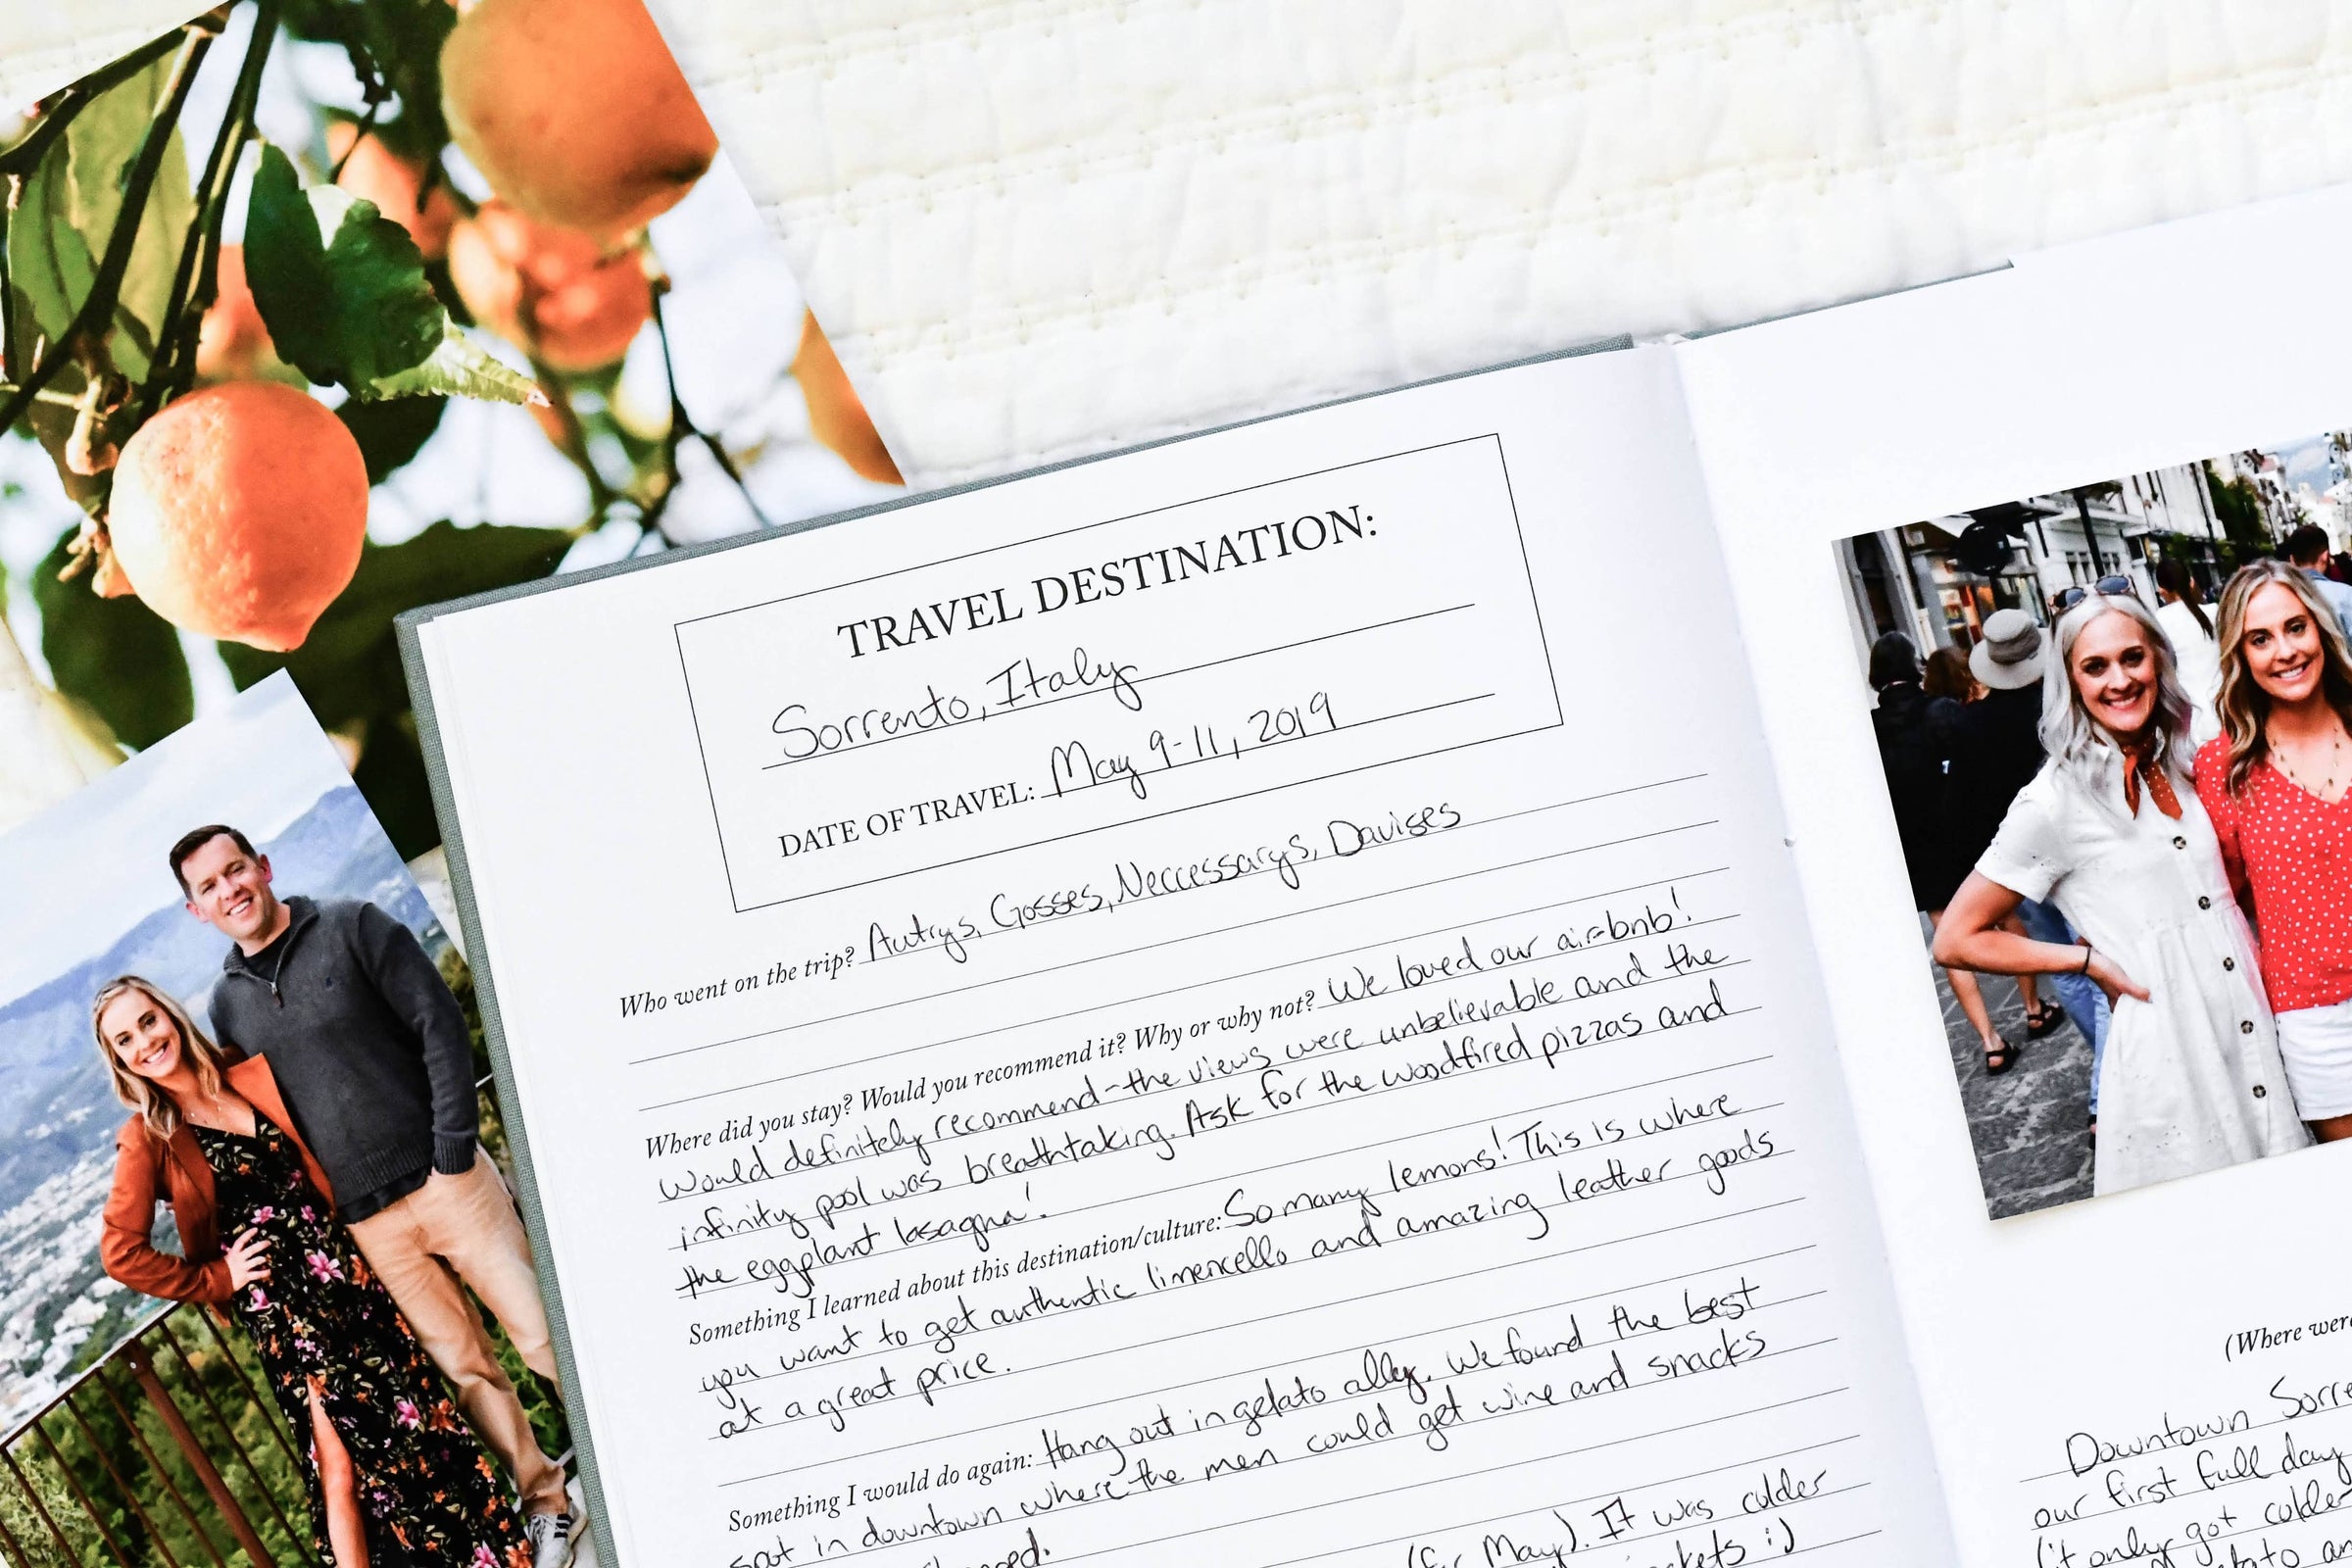 TRAVEL DESTINATION:
Sorrento, Italy
DATE OF TRAVEL: May 9-11, 2019
Who went on the trip? Autrys, Gosses, Neccessarys, Davises
Where did you stay? Would you recommend it? Why or why not? We loved our airbnb!
Would definitely recommend - the views were unbelievable and the
infinity pool was breathtaking. Ask for the woodfired pizzas and
the eggplant lasagna!
Something I learned about this destination/culture: So many lemons! This is where
you want to get authentic limencello and amazing leather goods
at a great price.
Something I would do again: Hang out in gelato ally. We found the best
spot in downtown where the men could get wine and snacks
May). It was colder
:)
(Where were
Downtown
our first full day
(it only got colder